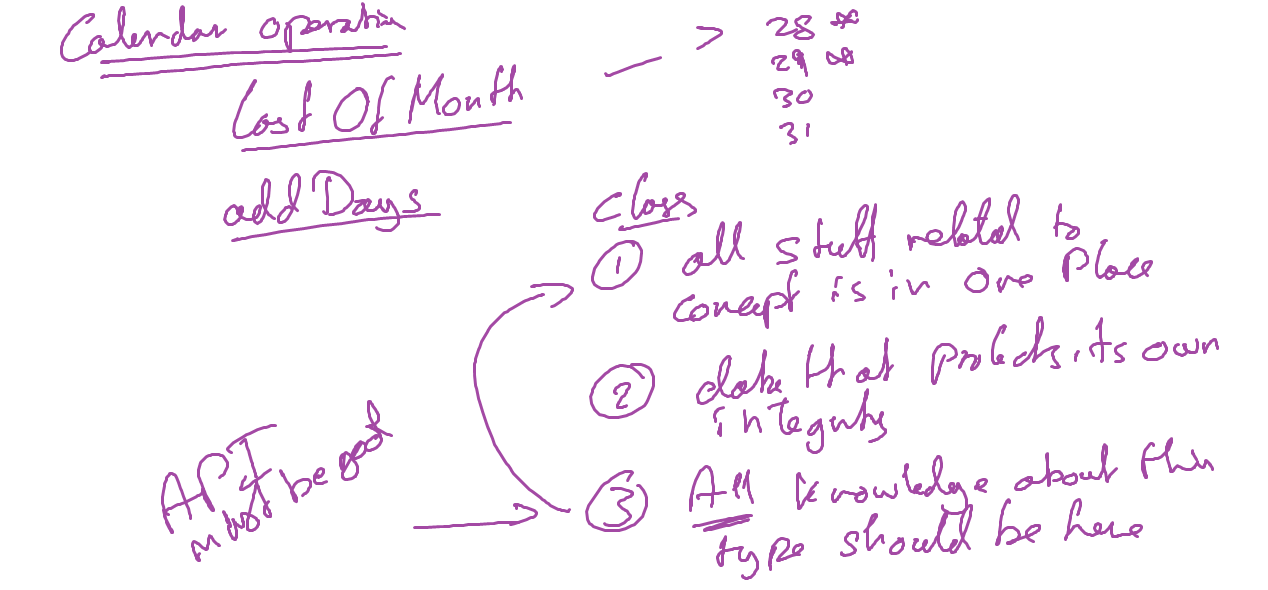 Calendar operation
Last Of Month
> 28 **
29 **
30
31
add Days
Class
① all stuff related to
concept is in One Place
② data that protects its own
integrity
API
must be good
③ All knowledge about this
type should be here